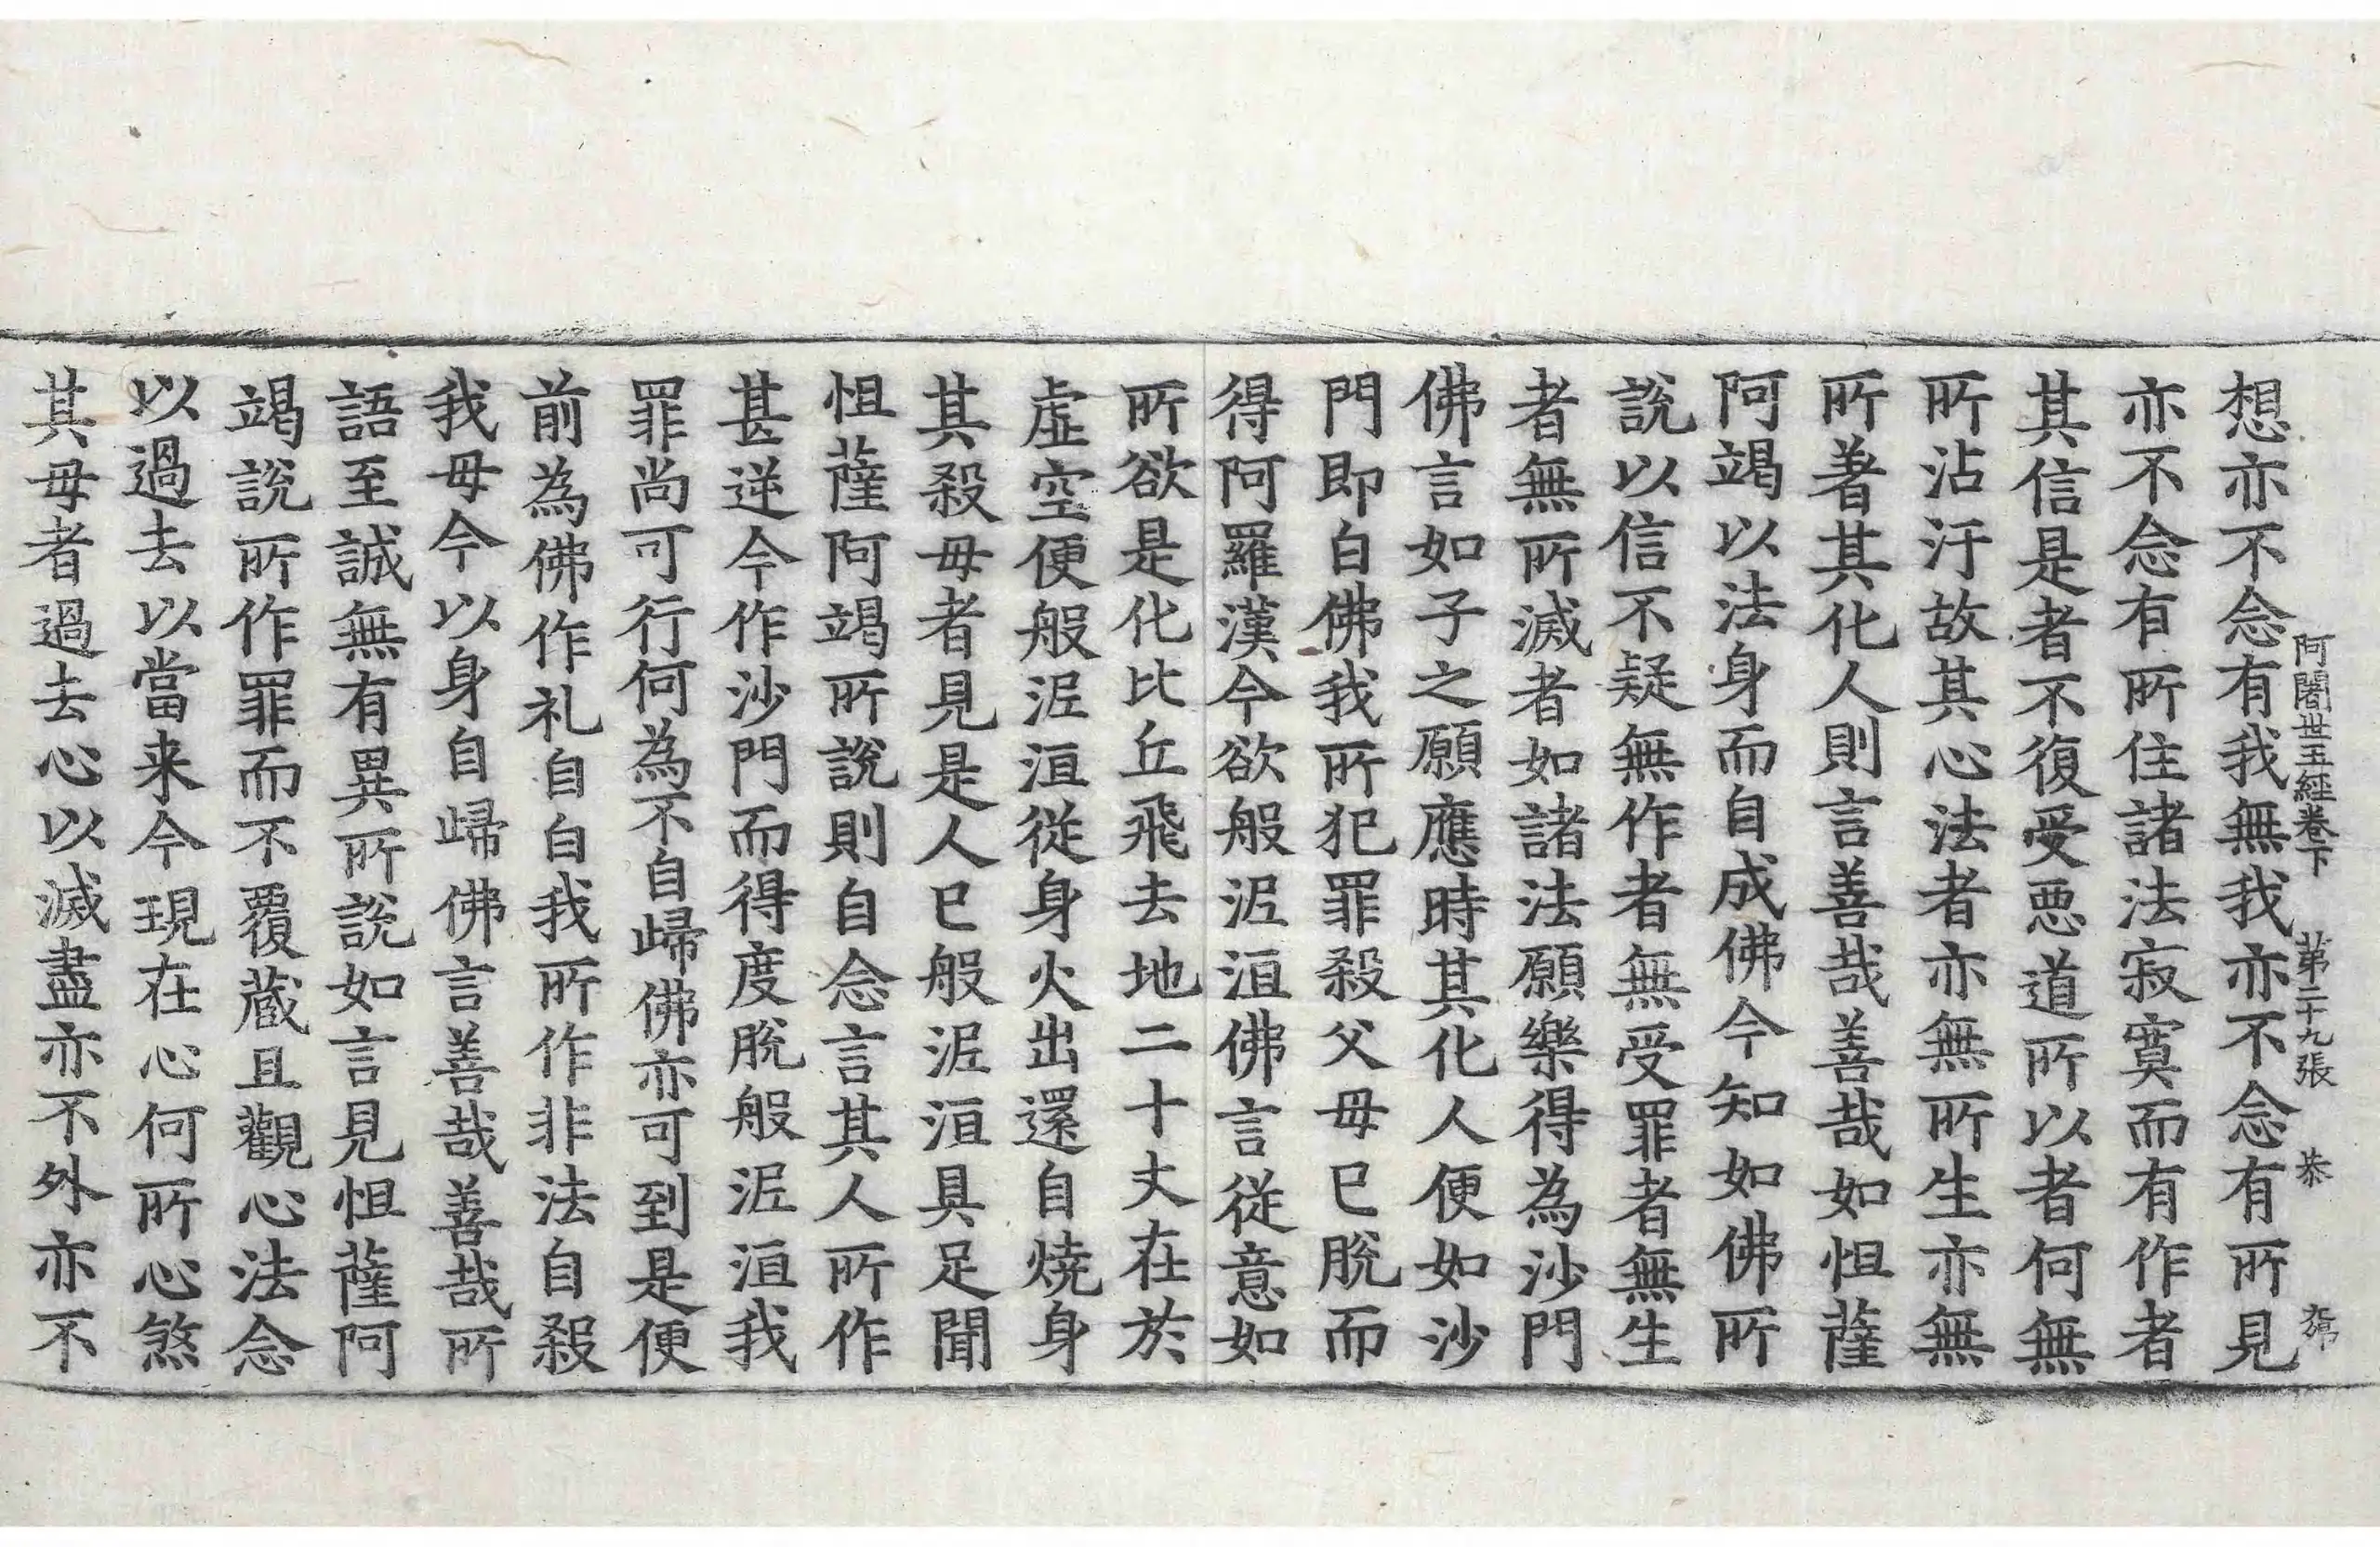 阿闍世王經卷下 第二十九張 恭
想亦不念有我無我亦不念有所見
亦不念有所住諸法寂寞而有作者
其信是者不復受悪道所以者何無
所沾汙故其心法者亦無所生亦無
所著其化人則言善哉善哉如怛薩
阿竭以法身而自成佛今知如佛所
說以信不疑無作者無受罪者無生
者無所滅者如諸法願樂得為沙門
佛言如子之願應時其化人便如沙
門即白佛我所犯罪殺父母已脫而
得阿羅漢今欲般泥洹佛言從意如
所欲是化比丘飛去地二十丈在於
虛空便般泥洹從身火出還自燒身
其殺母者見是人已般泥洹具足聞
怛薩阿竭所說則自念言其人所作
甚逆今作沙門而得度脫般泥洹我
罪尚可行何為不自歸佛亦可到是便
前為佛作礼自白我所作非法自殺
我母今以身自歸佛言善哉善哉所
語至誠無有異所說如言見怛薩阿
竭說所作罪而不覆蔵且觀心法念
以過去以當来今現在心何所心煞
其母者過去心以滅盡亦不外亦不